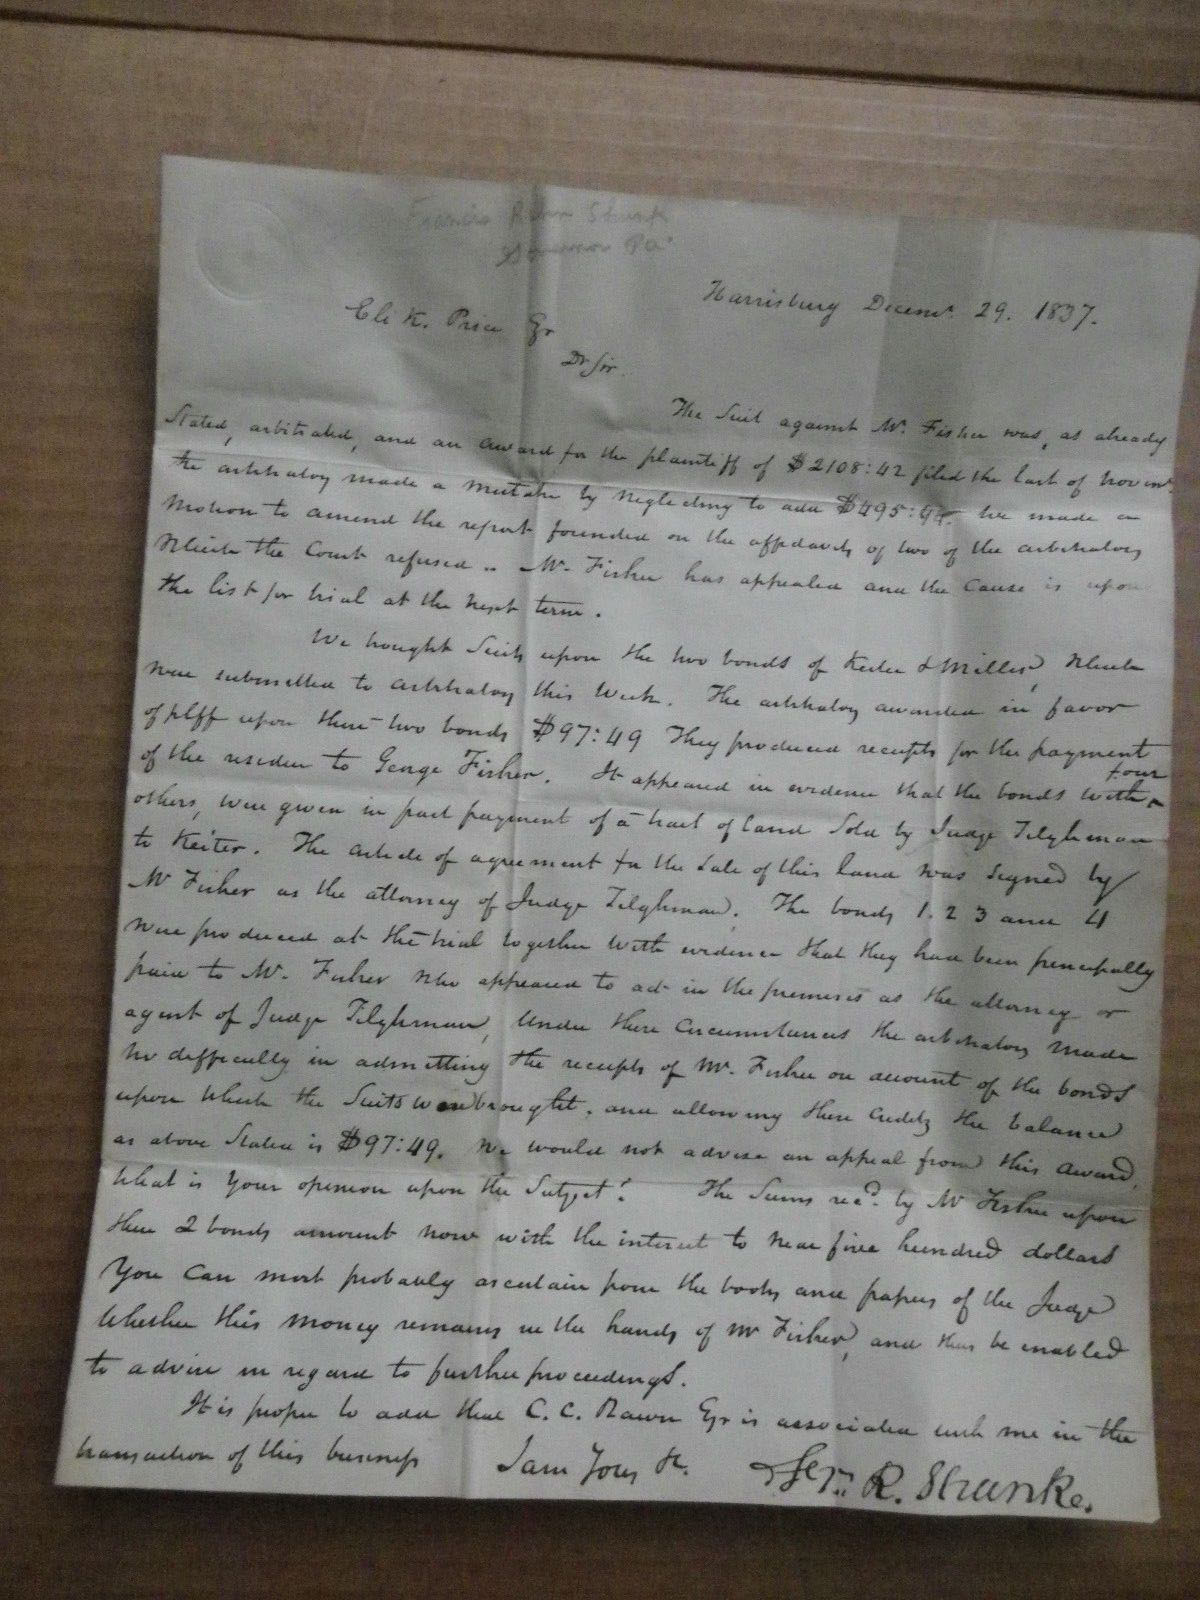 Francis Rawn Shunk
Governor Pa
Harrisburg Decemr. 29. 1837.
Eli K. Price Esqr
Dr Sir.
The Suit against Mr. Fisher was, as already
Stated, arbitrated, and an award for the plaintiff of $2108:42 filed the last of Novemr.
the arbitrators made a mistake by neglecting to add $495: We made a
motion to amend the report founded on the affidavits of two of the arbitrators
which the Court refused .. Mr. Fisher has appealed and the cause is upon
the list for trial at the next term.
We brought Suits upon the two bonds of Keiter & Miller, which
were submitted to arbitrators this week. The arbitrators awarded in favor
of plff upon these two bonds $97:49 They produced receipts for the payment
of the residue to George Fisher. It appeared in evidence that the bonds with four
others, were given in part payment of a tract of land Sold by Judge Tilghman
to Keiter. The article of agreement for the Sale of this land was Signed by
Mr Fisher as the attorney of Judge Tilghman. The bonds 1. 2 3 and 4
were produced at the trial together with evidence that they had been principally
paid to Mr. Fisher who appeared to act in the premises as the attorney or
agent of Judge Tilghman, Under these circumstances the arbitrators made
no difficulty in admitting the receipts of Mr. Fisher on account of the bonds
upon which the Suits were brought. and allowing these credits the balance
as above Stated is $97:49. We would not advise an appeal from this award,
What is your opinion upon the Subject? The Sums recd. by Mr Fisher upon
these 2 bonds amount now with the interest to near five hundred dollars
You can most probably ascertain from the books and papers of the Judge
whether this money remains in the hands of Mr Fisher, and thus be enabled
to advise in regard to further proceedings.
It is proper to add that C. C. Rawn Esqr is associated with me in the
transaction of this business
I am Yours &c. R. Shunk.